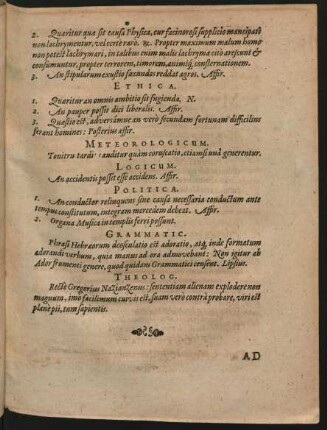 2. Quæritur quæ sit causa Physica, cur facinorosi supplicio mancipati
non lachrymentur, vel certè rarò. ℞. Propter maximum malum homo
non potest lachrymari, in talibus enim malis lachryma citò arescunt &
consumuntur, propter terrorem, timorem, animiq; consternationem.
3. An stipularum exustio fæcundos reddat agros. Affir.
ETHICA.
1. Quæritur an omnis ambitio sit fugienda. N.
2. An pauper possit dici liberalis. Affir.
3. Quæstio est, adversámne an verò secundam fortunam difficiliùs
ferant homines: Posterius affir.
METEOROLOGICUM.
Tonitru tardiùs auditur quàm coruscatio, etiamsi unà generentur.
LOGICUM.
An accidentis possit esse accidens. Affir.
POLITICA.
1. An conductor relinquens sine causa necessaria conductum ante
tempus constitutum, integram mercedem debeat. Affir.
2. Organa Musica in templis ferri possunt.
GRAMMATIC.
Phrasi Hebræorum deosculatio est adoratio, atq; inde formatum
adorandi verbum, quia manus ad ora admovebant: Non igitur ab
Ador frumenti genere, quod quidam Grammatici censent. Lipsius.
THEOLOG.
Rectè Gregorius Nazianzenus: sententiam alienam explodere non
magnum, imò facillimum cuivis est, suam verò contrà probare, viri est
planè pii, tum sapientis.
AD